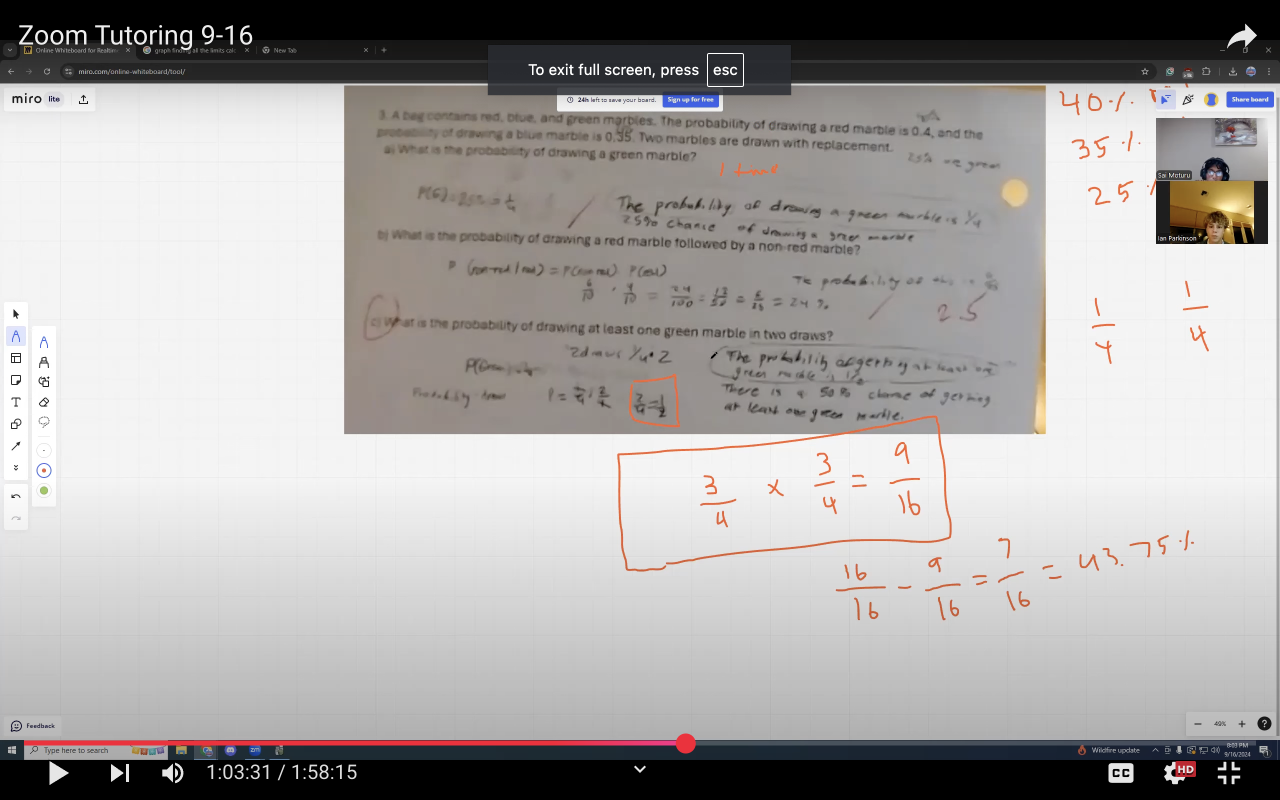 Zoom Tutoring 9-16
Online Whiteboard for Realtim
graph finding all the limits calc
New Tab
To exit full screen, press esc
miro.com/online-whiteboard/tool/
miro lite
24h left to save your board. Sign up for free
Share board
3. A bag contains red, blue, and green marbles. The probability of drawing a red marble is 0.4, and the
probability of drawing a blue marble is 0.35. Two marbles are drawn with replacement.
a) What is the probability of drawing a green marble?
25% are green
1 time
40%
35%
25%
Sai Moturu
Ian Parkinson
P(G)=25%=1/4
The probability of drawing a green marble is 1/4
25% chance of drawing a green marble
b) What is the probability of drawing a red marble followed by a non-red marble?
P (non-red/red) = P(non red) P(red)
6/10 · 4/10 = 24/100 = 12/50 = 6/25 = 24%
The probability of this is
2.5
c) What is the probability of drawing at least one green marble in two draws?
2 draws 1/4 • 2
The probability of getting at least one
green marble is 1/2
There is a 50% chance of getting
at least one green marble.
Probability
P =
2/4 = 1/2
1/4 1/4
3/4 x 3/4 = 9/16
16/16 - 9/16 = 7/16 = 43.75%
Feedback
49%
Type here to search
Wildfire update
8:03 PM
9/16/2024
1:03:31 / 1:58:15
CC
HD